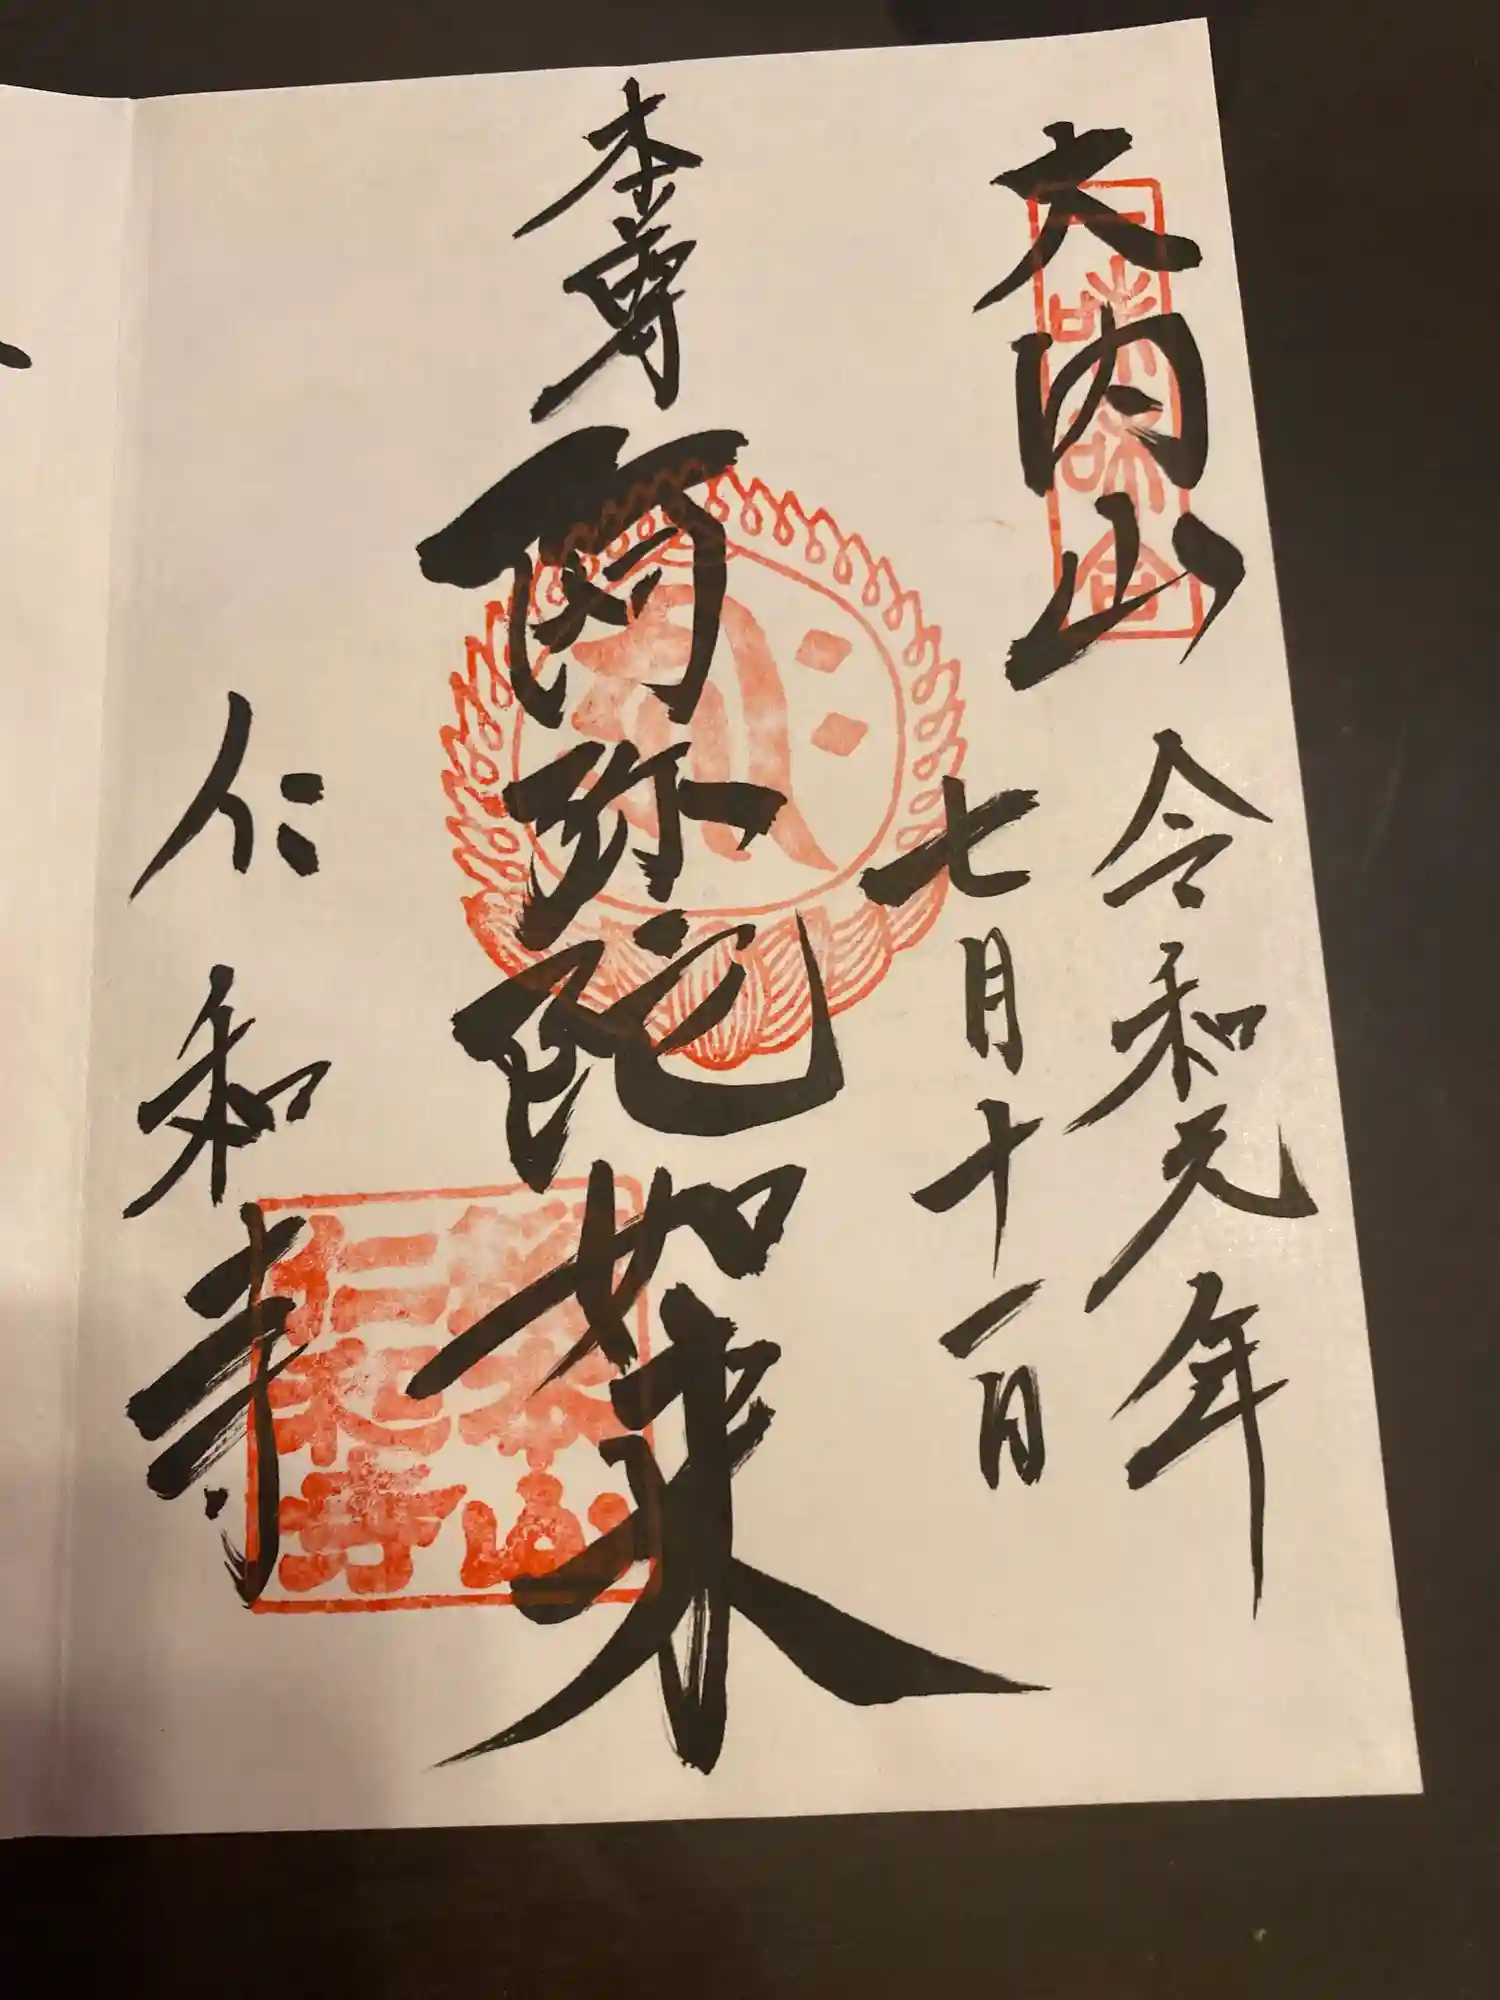 大内山
一味和合
令和元年
七月十一日
本尊
阿弥陀如来
仁和寺
總本山
仁和寺